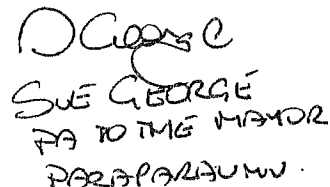 SUE GEORGE
PA TO THE MAYOR
PARAPARAUMU.